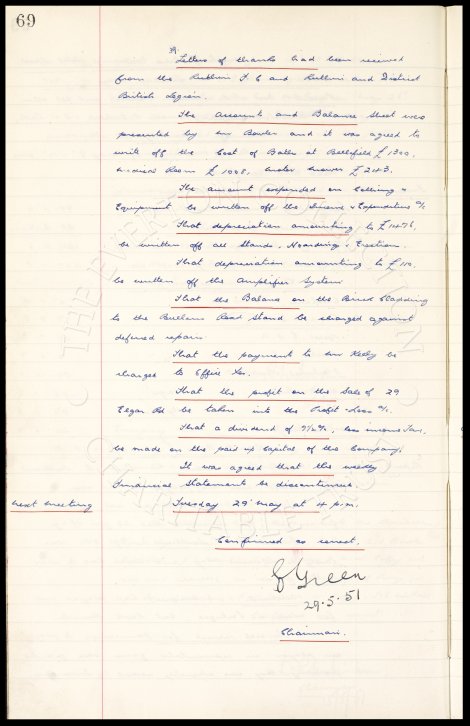 69
39.
Letters of thanks had been received
from the Ruthin F.C and Ruthin and District
British Legion.
The Account and Balance Sheet were
presented by Mr Bowler and it was agreed to
write off the Cost of Baths at Bellefield £1300,
Room £1008, Motor Mower £243.
The amount expended on Clothing &
Equipment be written off the Income & Expenditure a/c
That depreciation amounting to £1476,
be written off all Stands, Hoardings & Erection.
That depreciation amounting to £110,
be written off the Amplifier System
That the Balance on the Cladding
to the Bullens Road Stand be charged against
deferred repairs
That the payment to Mr Kelly be
charged to Office Sal.
That the profit on the Sale of 29
Elgar Rd be taken into the Profit & Loss a/c.
That a dividend of 7½%, less income Tax,
be made on the paid up capital of the Company.
It was agreed that the weekly
Financial Statement be discontinued.
next meeting
Tuesday 29 May at 4 p.m.
Confirmed as correct.
Green
29.5.51
Chairman.
THE EVERTON COLLECTION
CHARITABLE TRUST